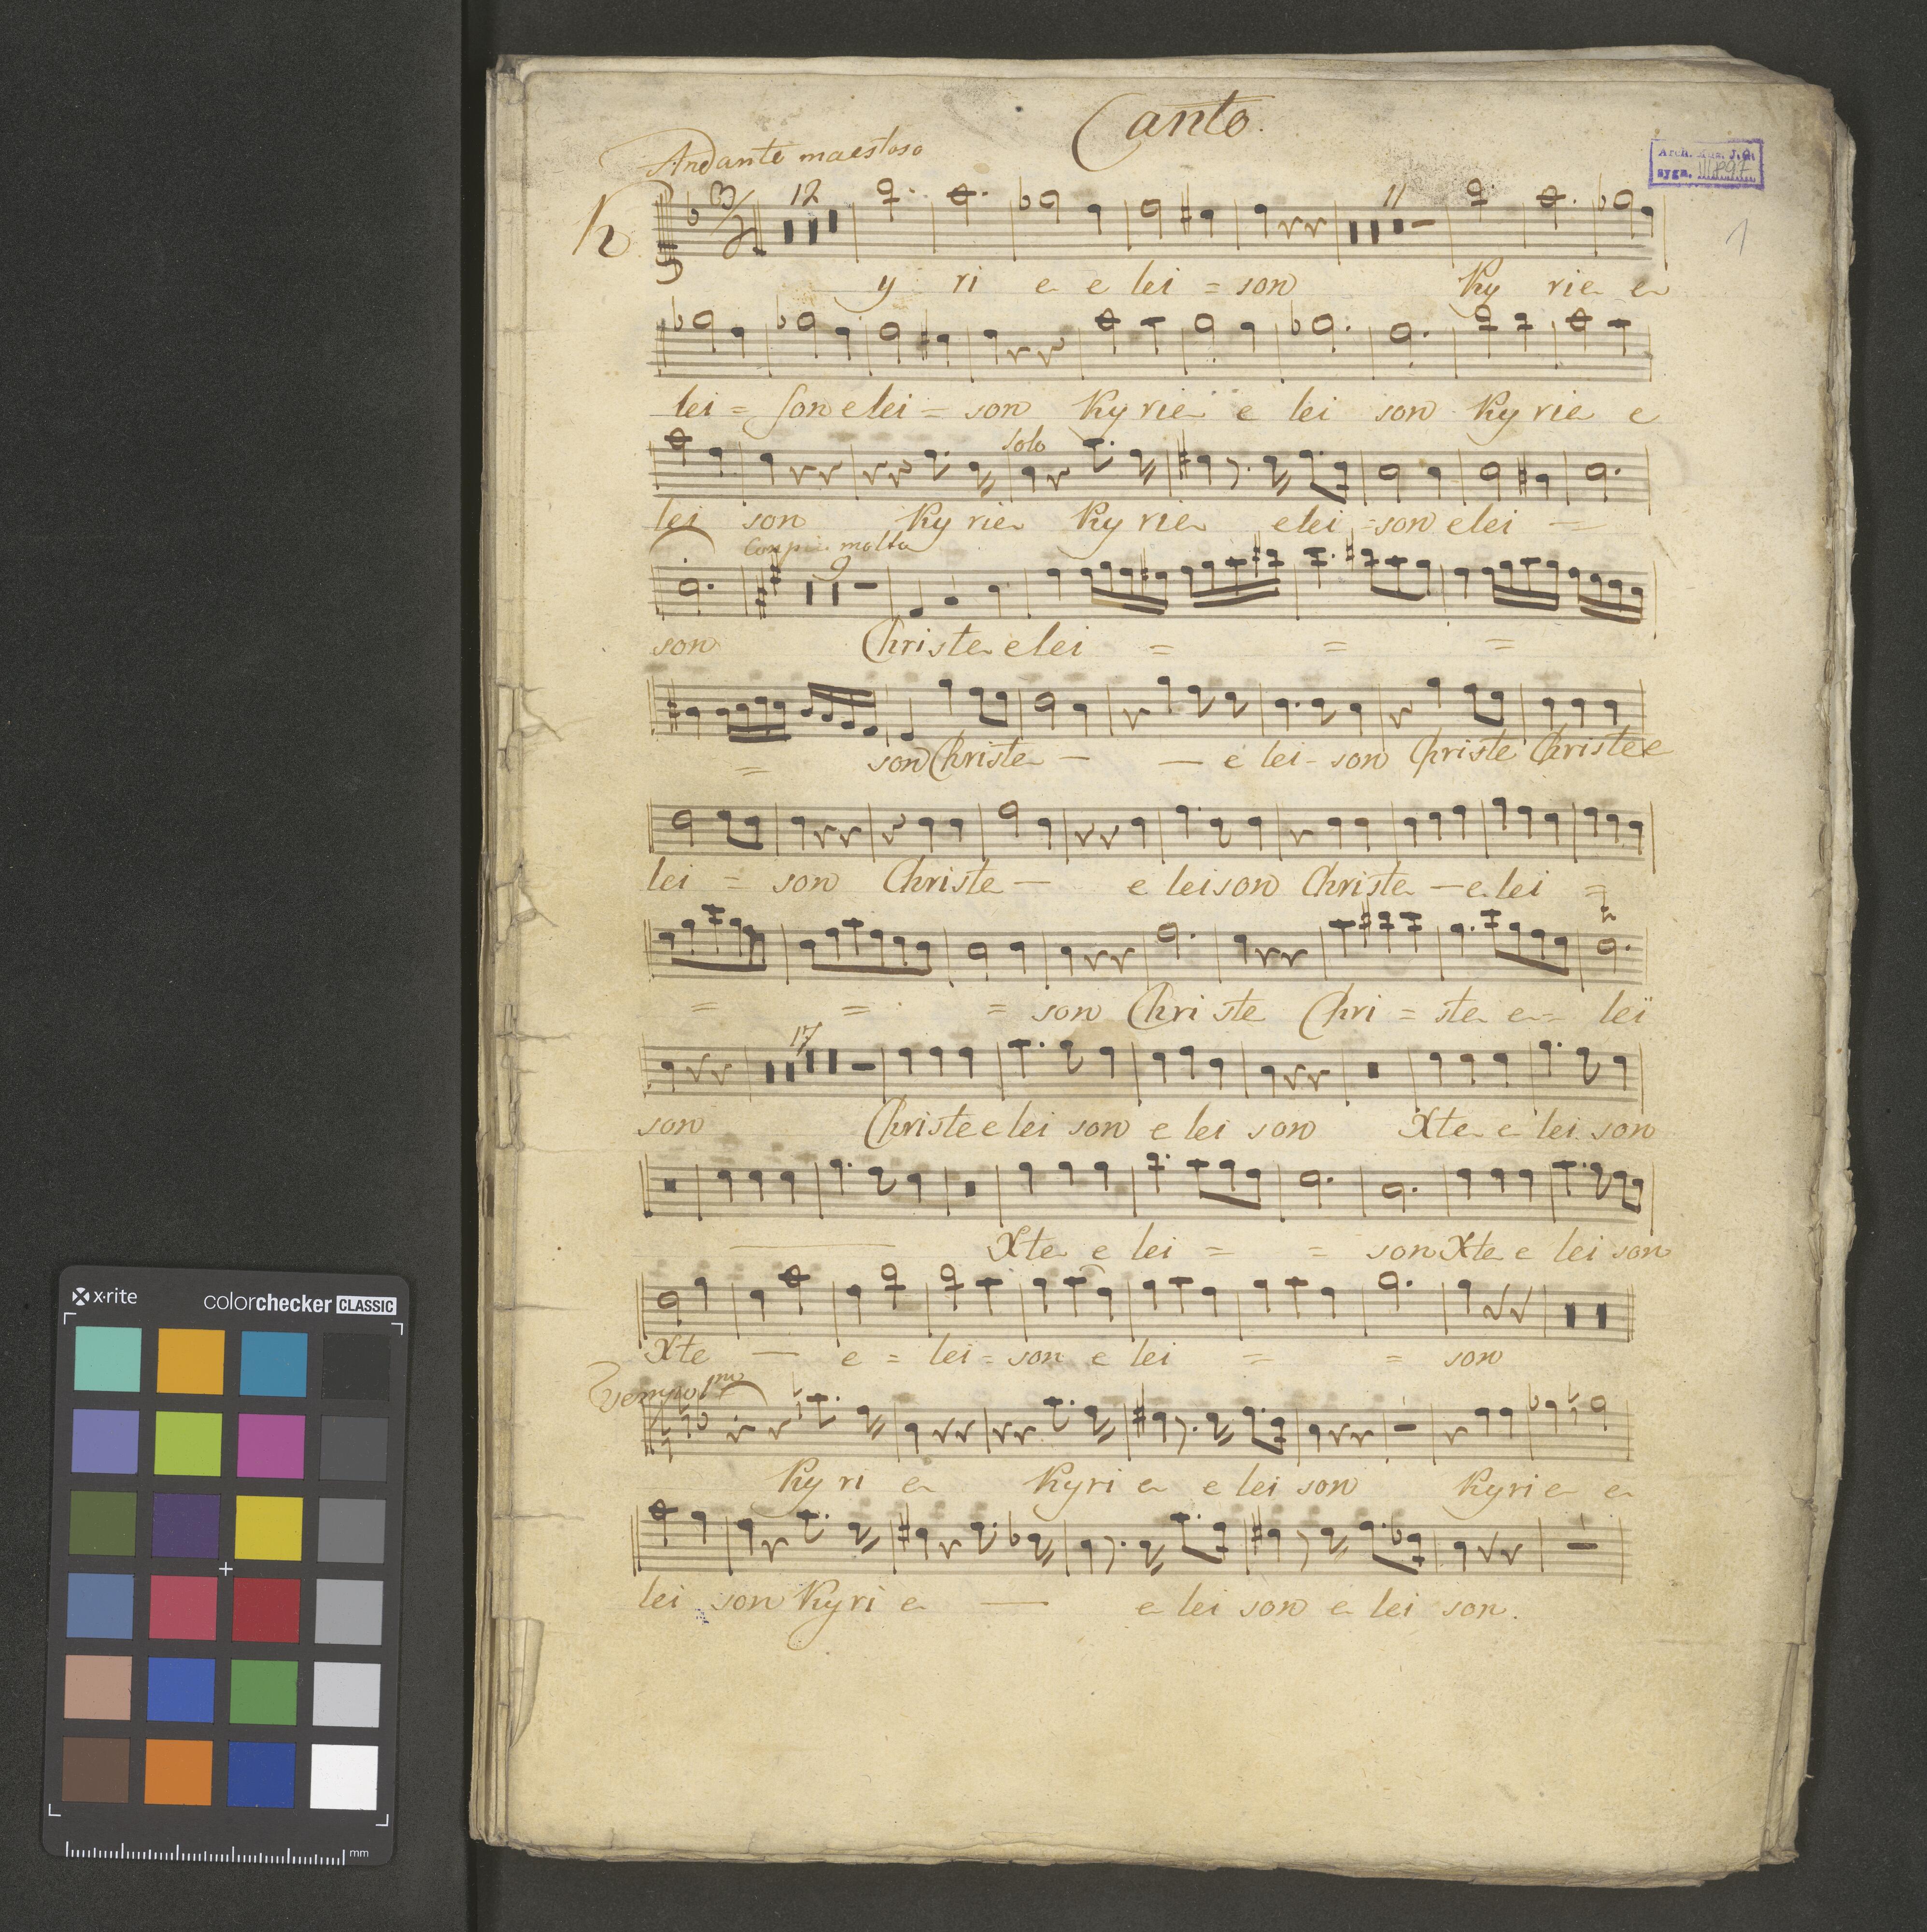 Canto.
Andante maestoso
Arch. Mus. J. G.
sygn. III 897
1
12
11
K
y ri e e lei = son Ky rie e
lei = son elei = son Kyrie e lei son Kyrie e
solo
lei son Kyrie Kyrie elei = son elei =
Con più molto
9
son Christe elei = = =
= son Christe — — e lei - son Christe Christe e
lei = son Christe — e leison Christe — e lei =
= = = son Christe Chri = ste e = leï
17
son Christe e lei son e lei son Xte e lei son
Xte e lei = = son Xte e lei son
Xte — e = lei = son e lei = = son
Tempo 1mo
Kyri e Kyri e e lei son Kyrie e
lei son Kyri e — e lei son e lei son.
x·rite colorchecker CLASSIC
mm